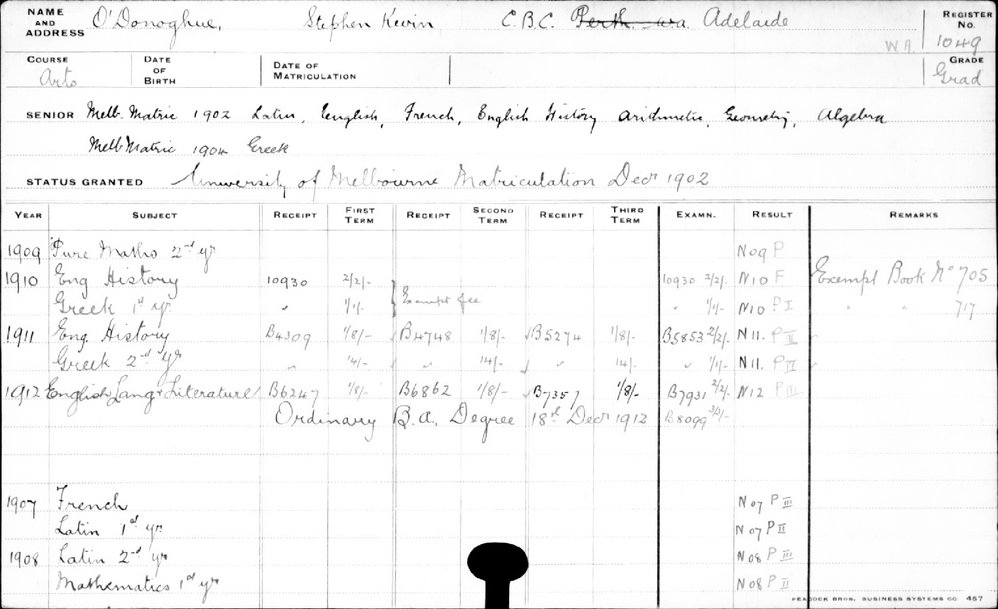 NAME AND ADDRESS O'Donoghue, Stephen Kevin C.B.C. Perth W.A. Adelaide W.A. REGISTER No. 1049
COURSE Arts DATE OF BIRTH DATE OF MATRICULATION GRADE Grad
SENIOR Melb. Matric 1902 Latin, English, French, English History Arithmetic, Geometry, Algebra
Melb Matric 1904 Greek
STATUS GRANTED University of Melbourne Matriculation Decr 1902
YEAR SUBJECT RECEIPT FIRST TERM RECEIPT SECOND TERM RECEIPT THIRD TERM EXAMN. RESULT REMARKS
1909 Pure Maths 2nd yr N09 P
1910 Eng History 10930 2/2/- 10930 2/2/- N10 F Exempt Book No 705
Greek 1st yr " 1/1/- Exempt fee " 1/1/- N10 P II " " 717
1911 Eng. History B4309 1/8/- B4748 1/8/- B5274 1/8/- B5853 2/2/- N11. P II
Greek 2nd yr " 14/- " 14/- " 14/- " 1/1/- N11. P II
1912 English Lang & Literature B6247 1/8/- B6862 1/8/- B7357 1/8/- B7931 2/2/- N12 P III
Ordinary B.A. Degree 18th Decr 1912 B8099 3/3/-
1907 French N07 P III
Latin 1st yr N07 P II
1908 Latin 2nd yr N08 P III
Mathematics 1st yr N08 P II
PEACOCK BROS. BUSINESS SYSTEMS CO 457